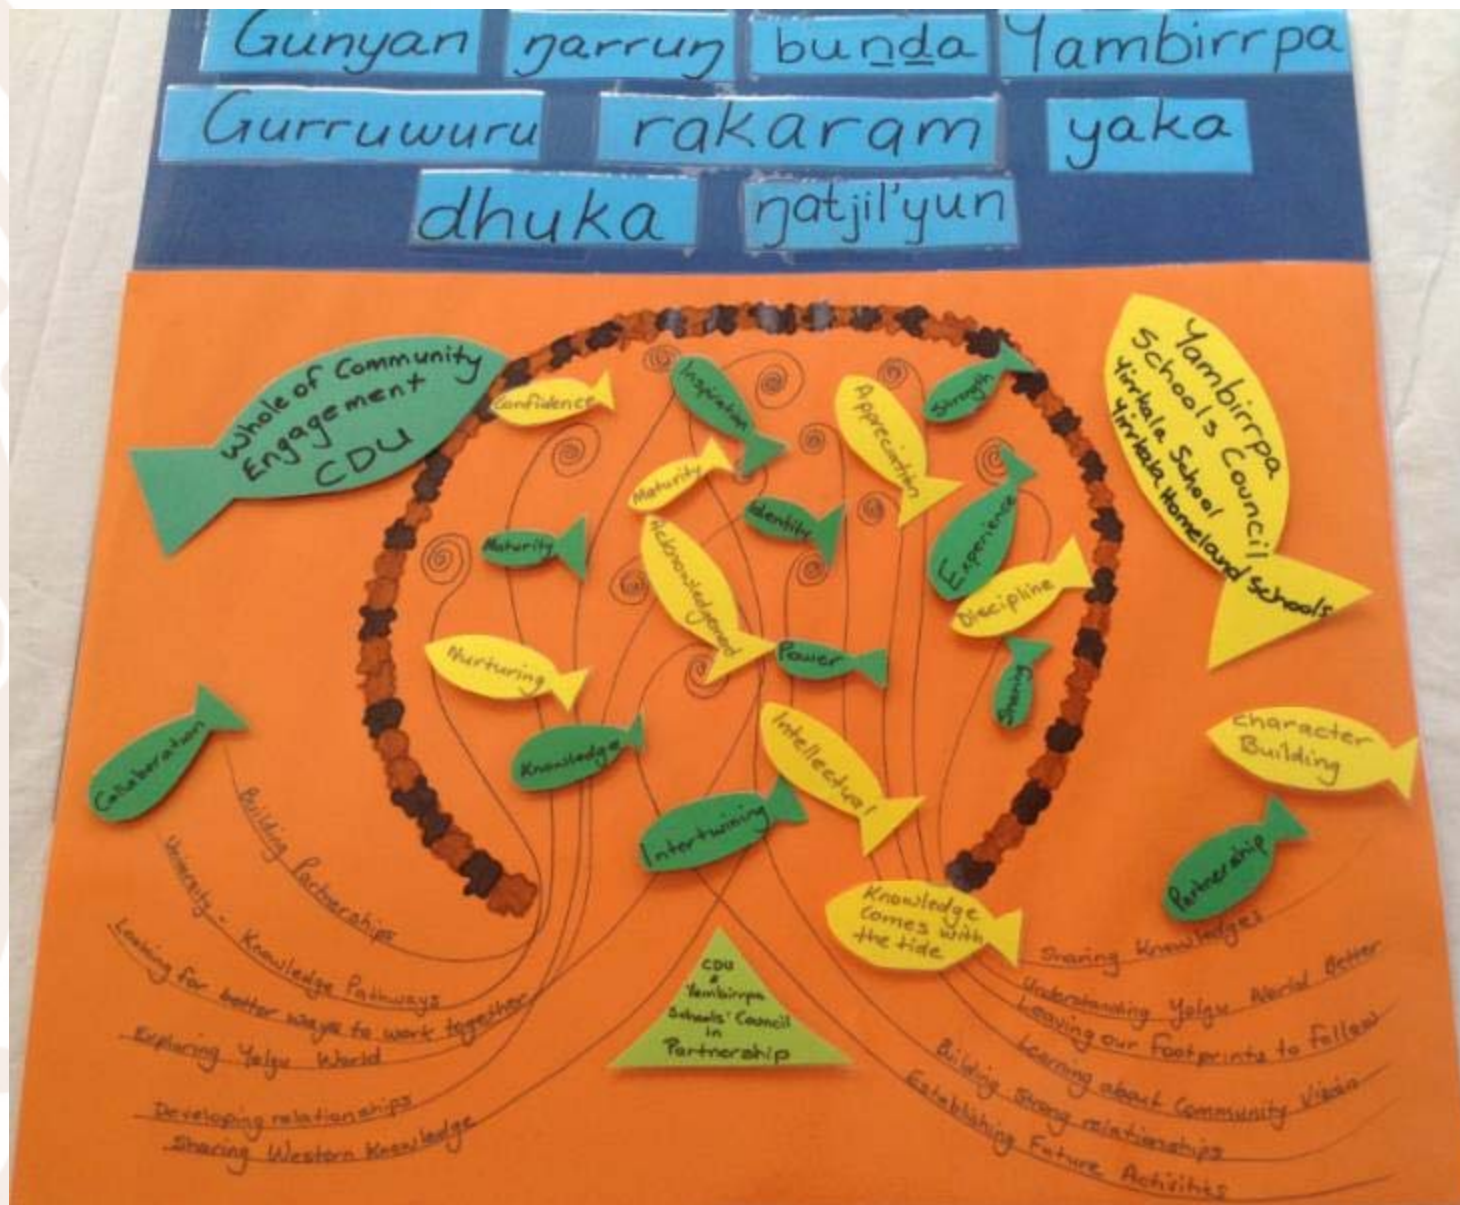 Gunyan ŋarruŋ buṉḏa Yambirrpa
Gurruwuru rakaram yaka
dhuka ŋatjil'yun
Whole of Community
Engagement
CDU
Yambirrpa
Schools Council
Yirrkala School
Yirrkala Homeland Schools
Confidence
Inspiration
Appreciation
Strength
Maturity
Identity
Maturity
Experience
Acknowledgement
Discipline
Nurturing
Power
Sharing
Knowledge
Intellectual
Intertwining
Collaberation
Character
Building
Partnership
Knowledge
Comes with
the tide
CDU
&
Yambirrpa
Schools' Council
in
Partnership
Building Partnerships
University - Knowledge Pathways
Looking for better ways to work together
Exploring Yolŋu World
Developing relationships
Sharing Western Knowledge
Sharing Knowledges
Understanding Yolŋu World Better
Leaving our Footprints to Follow
Learning about Community Vision
Building strong relationships
Establishing Future Activities